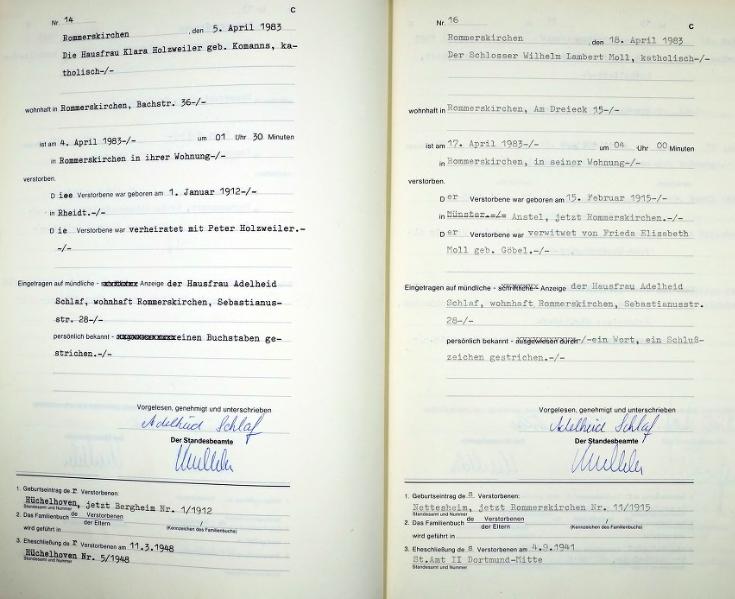 C
Nr. 14
Rommerskirchen , den 5. April 1983
Die Hausfrau Klara Holzweiler geb. Komanns, ka-
tholisch-/-
wohnhaft in Rommerskirchen, Bachstr. 36-/-
ist am 4. April 1983-/- um 01 Uhr 30 Minuten
in Rommerskirchen in ihrer Wohnung-/-
verstorben.
D iee Verstorbene war geboren am 1. Januar 1912-/-
in Rheidt.-/-
D ie Verstorbene war verheiratet mit Peter Holzweiler.-
-/-
Eingetragen auf mündliche - schriftliche Anzeige der Hausfrau Adelheid
Schlaf, wohnhaft Rommerskirchen, Sebastianus-
str. 28-/-
persönlich bekannt - einen Buchstaben ge-
strichen.-/-
Vorgelesen, genehmigt und unterschrieben
Adelheid Schlaf
Der Standesbeamte
1. Geburtseintrag de r Verstorbenen:
Hüchelhoven, jetzt Bergheim Nr. 1/1912
Standesamt und Nummer
2. Das Familienbuch de Verstorbenen
der Eltern (Kennzeichen des Familienbuchs)
wird geführt in
3. Eheschließung de r Verstorbenen am 11.3.1948
Hüchelhoven Nr. 5/1948
Standesamt und Nummer
C
Nr. 16
Rommerskirchen , den 18. April 1983
Der Schlosser Wilhelm Lambert Moll, katholisch-/-
wohnhaft in Rommerskirchen, Am Dreieck 15-/-
ist am 17. April 1983-/- um 04 Uhr 00 Minuten
in Rommerskirchen, in seiner Wohnung-/-
verstorben.
D er Verstorbene war geboren am 15. Februar 1915-/-
in Münster.-/- Anstel, jetzt Rommerskirchen.-/-
D er Verstorbene war verwitwet von Frieda Elisabeth
Moll geb. Göbel.-/-
Eingetragen auf mündliche - schriftliche Anzeige der Hausfrau Adelheid
Schlaf, wohnhaft Rommerskirchen, Sebastianusstr.
28-/-
persönlich bekannt - ausgewiesen durch -/-ein Wort, ein Schluß-
zeichen gestrichen.-/-
Vorgelesen, genehmigt und unterschrieben
Adelheid Schlaf
Der Standesbeamte
1. Geburtseintrag de s Verstorbenen:
Nettesheim, jetzt Rommerskirchen Nr. 11/1915
Standesamt und Nummer
2. Das Familienbuch de Verstorbenen
der Eltern (Kennzeichen des Familienbuchs)
wird geführt in
3. Eheschließung de s Verstorbenen am 4.9.1941
St.Amt II Dortmund-Mitte
Standesamt und Nummer